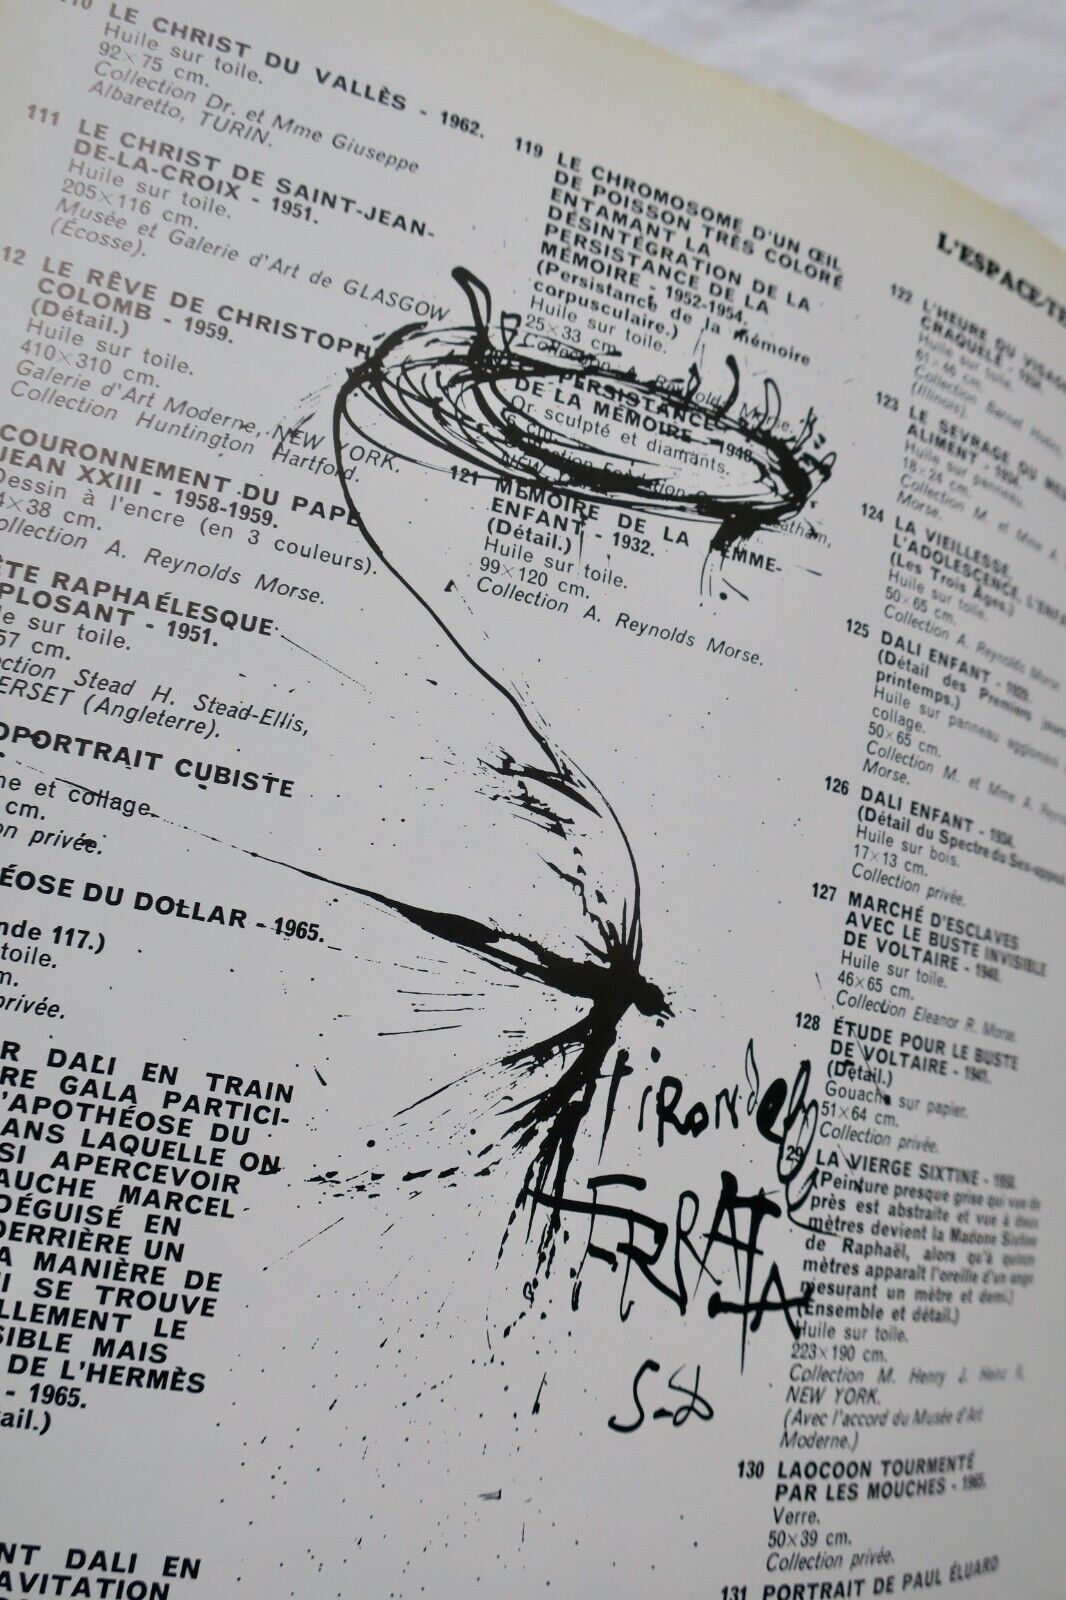 110 LE CHRIST DU VALLÈS - 1962.
Huile sur toile.
92×75 cm.
Collection Dr. et Mme Giuseppe
Albaretto, TURIN.
111 LE CHRIST DE SAINT-JEAN-
DE-LA-CROIX - 1951.
Huile sur toile.
205×116 cm.
Musée et Galerie d'Art de GLASGOW
(Écosse).
12 LE RÊVE DE CHRISTOPH
COLOMB - 1959.
(Détail.)
Huile sur toile.
410×310 cm.
Galerie d'Art Moderne, NEW YORK.
Collection Huntington Hartford.
COURONNEMENT DU PAPE
JEAN XXIII - 1958-1959.
Dessin à l'encre (en 3 couleurs).
4×38 cm.
ollection A. Reynolds Morse.
ÈTE RAPHAÉLESQUE
PLOSANT - 1951.
le sur toile.
57 cm.
ection Stead H. Stead-Ellis,
ERSET (Angleterre).
OPORTRAIT CUBISTE
he et collage.
cm.
on privée.
ÉOSE DU DOLLAR - 1965.
nde 117.)
toile.
m.
privée.
R DALI EN TRAIN
RE GALA PARTICI-
'APOTHÉOSE DU
ANS LAQUELLE ON
SI APERCEVOIR
AUCHE MARCEL
DÉGUISÉ EN
DERRIÈRE UN
A MANIÈRE DE
I SE TROUVE
LLEMENT LE
SIBLE MAIS
DE L'HERMÈS
- 1965.
ail.)
NT DALI EN
AVITATION
119 LE CHROMOSOME D'UN ŒIL
DE POISSON TRÈS COLORÉ
ENTAMANT LA
DÉSINTÉGRATION DE LA
PERSISTANCE DE LA
MÉMOIRE - 1952-1954.
(Persistance de la mémoire
corpusculaire.)
Huile sur toile.
25×33 cm.
Collection A. Reynolds Morse.
PERSISTANCE
DE LA MÉMOIRE - 1948
Or sculpté et diamants.
cm.
NEW
121 MÉMOIRE DE LA FEMME-
ENFANT - 1932.
(Détail.)
Huile sur toile.
99×120 cm.
Collection A. Reynolds Morse.
Tirondel
ERRATA
S-d
L'ESPACE-TE
122 L'HEURE DU VISAG
CRAQUELÉ
Huile sur toile.
61×46 cm.
Collection Bernat
(Illinois).
123 LE SEVRAGE DU MEU
ALIMENT - 1934.
Huile sur panneau.
18×24 cm.
Collection M. et Mme A.
Morse.
124 LA VIEILLESSE,
L'ADOLESCENCE, L'ENFA
(Les Trois Âges.)
Huile sur toile.
50×65 cm.
Collection A. Reynolds Morse.
125 DALI ENFANT - 1929.
(Détail des Premiers jours
printemps.)
Huile sur panneau aggloméré
collage.
50×65 cm.
Collection M. et Mme A. Reyn
Morse.
126 DALI ENFANT - 1934.
(Détail du Spectre du Sex-appeal
Huile sur bois.
17×13 cm.
Collection privée.
127 MARCHÉ D'ESCLAVES
AVEC LE BUSTE INVISIBLE
DE VOLTAIRE - 1940.
Huile sur toile.
46×65 cm.
Collection Eleanor R. Morse.
128 ÉTUDE POUR LE BUSTE
DE VOLTAIRE - 1941.
(Détail.)
Gouache sur papier.
51×64 cm.
Collection privée.
129 LA VIERGE SIXTINE - 1958.
(Peinture presque grise qui vue de
près est abstraite et vue à deux
mètres devient la Madone Sixtine
de Raphaël, alors qu'à quinze
mètres apparaît l'oreille d'un ange
mesurant un mètre et demi.)
(Ensemble et détail.)
Huile sur toile.
223×190 cm.
Collection M. Henry J. Heinz II,
NEW YORK.
(Avec l'accord du Musée d'Art
Moderne.)
130 LAOCOON TOURMENTÉ
PAR LES MOUCHES - 1965.
Verre.
50×39 cm.
Collection privée.
131 PORTRAIT DE PAUL ÉLUARD